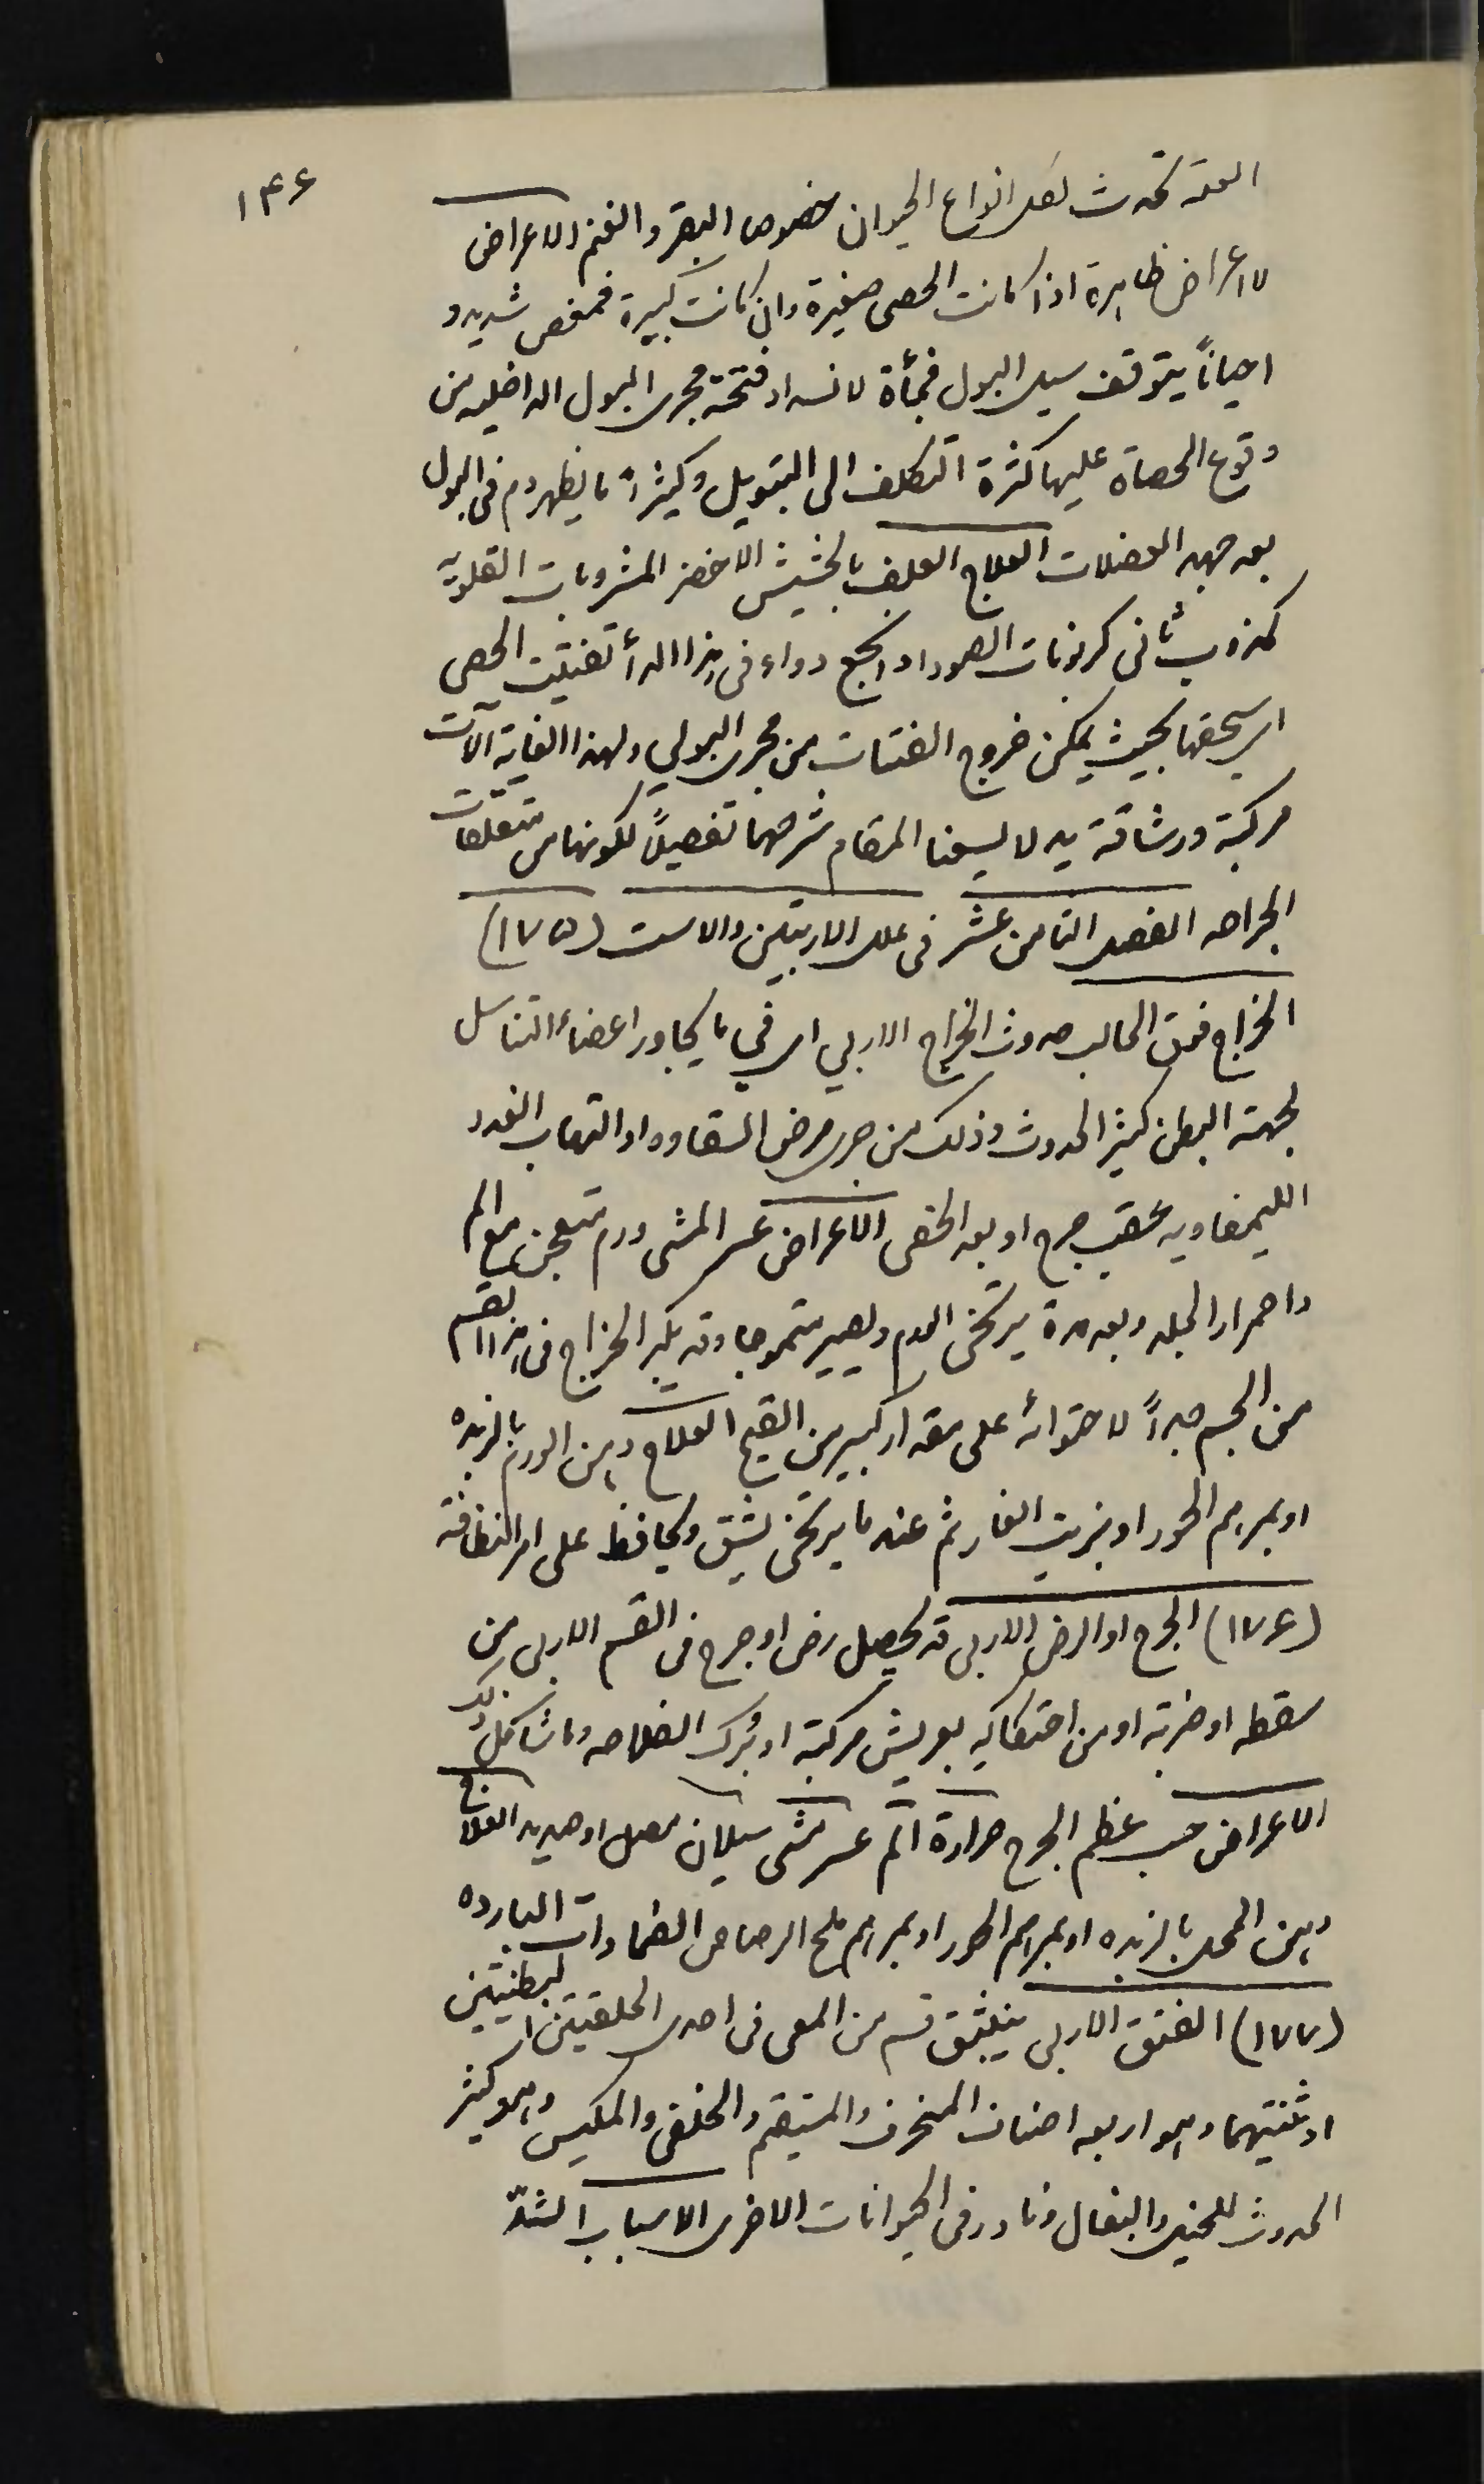 ١۴۶
العلة تحدث لكل انواع الحيوان خصوصا البقر والغنم الاعراض
لا اعراض ظاهرة اذا كانت الحصى صغيرة وان كانت كبيرة فمغص شديد و
احياناً يتوقف سيل البول فجأة لانسداد فتحة مجرى البول الداخليه من
وقوع الحصاة عليها كثرة التكلف الى التبويل وكثيراً ما يظهر دم فى البول
بعد جهد العضلات العلاج العلف بالحشيش الاخضر المشروبات القلوية
كمذوب ثانى كربونات الصودا وانجع دواء فى هذا الدأ تفتيت الحصى
اى سحقها بحيث يمكن خروج الفتات من مجرى البولي ولهذا الغاية آلات
مركبة ورشاقة يد لا يسعنا المقام شرحهما تفصيلاً لكونها من متعلقات
الجراحه الفصل الثامن عشر فى علل الاربيتين والاست (١٧۵)
الخراج فوق الحالب حدوث الخراج الاربي اى في ما يجاور اعضاء التناسل
لجهة البطن كثير الحدوث وذلك من جرى مرض السقاوه او التهاب الغدد
الليمفاويه عقيب جرح او بعد الخصى الاعراض عسر المشى ورم متعجن مع الم
واحمرار الجلد وبعد مدة يرتخى الورم ويصير متموجا وقد يكبر الخراج فى هذا القسم
من الجسم جداً لاحتوائه على مقدار كبير من القيح العلاج دهن الورم بالزبده
او بمرهم الحور او بزيت الغار ثم عند ما يرتخى يشق ويحافظ على امر النظافة
(١٧۶) الجرح او الرض الاربى قد يحصل رض او جرح فى القسم الاربى من
سقطه او ضربة او من احتكاكه بعريش مركبة او بُرك الفلاحه وما شاكل ذلك
الاعراض حسب عظم الجرح حرارة آلم عسر مشى سيلان مصل او صديد العلاج
دهن المحل بالزبده او بمرهم الحور او بمرهم ملح الرصاص الضمادات البارده
(١٧٧) الفتق الاربى ينبثق قسم من المعى فى احدى الحلقتين البطنيتين
او ثنتيهما وهو اربعه اصناف المنحرف والمستقيم والخلقى والمكيس وهو كثير
الحدوث للخيل والبغال ونادر فى الحيوانات الاخرى الاسباب الشدّ